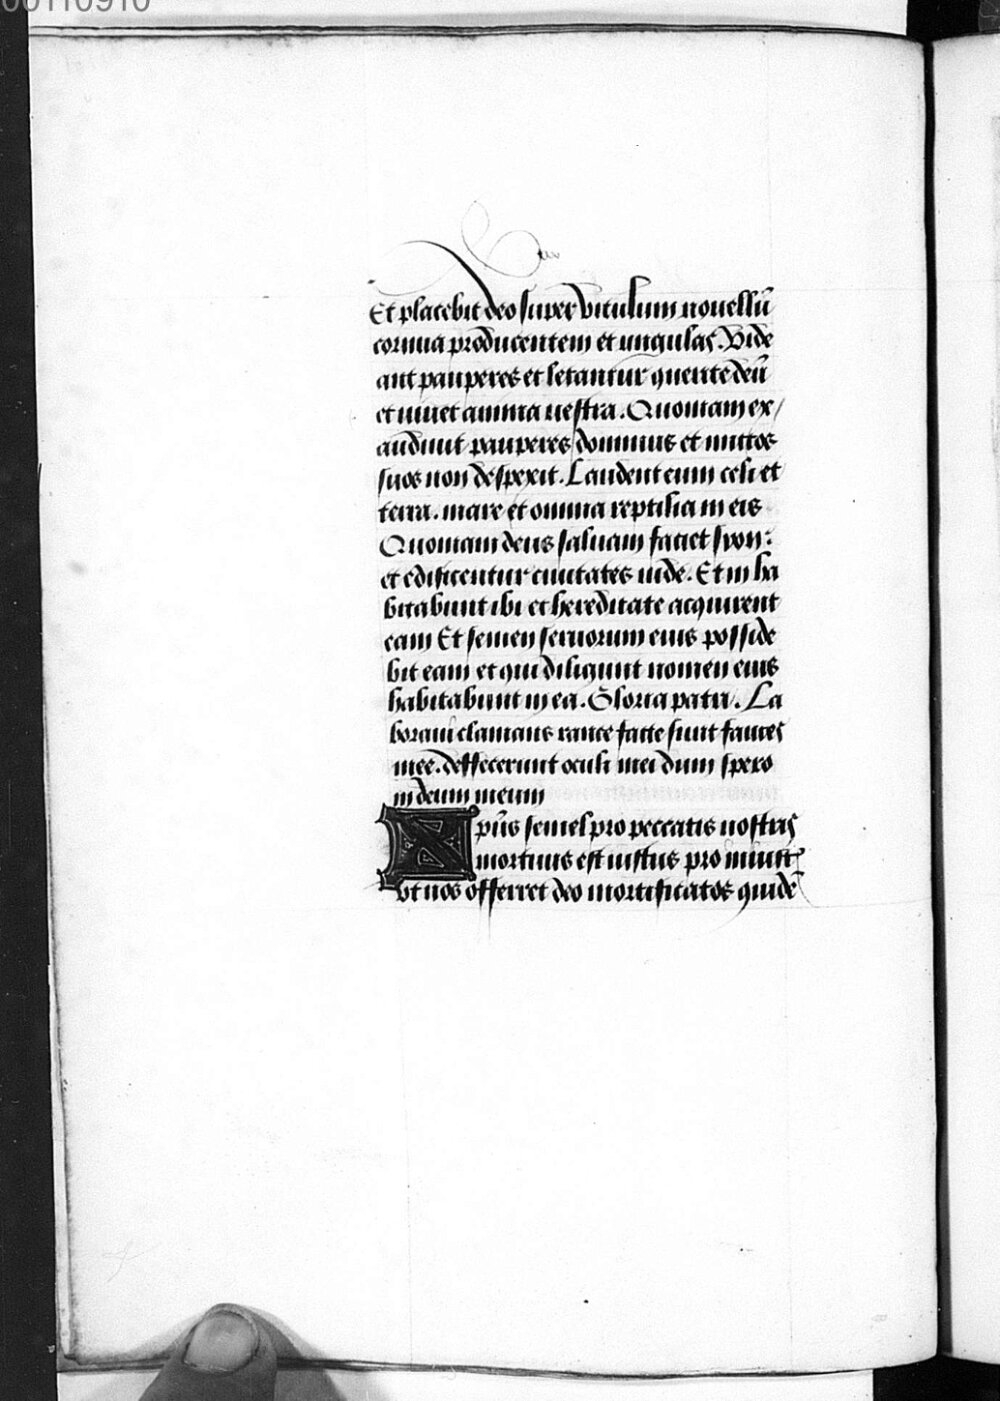 00110910
Et placebit deo super vitulum nouellũ
cornua producentem et ungulas. Vide
ant pauperes et letantur querite deũ
et uiuet anima uestra. Quoniam ex/
audiuit pauperes dominus et uinctos
suos non despexit. Laudent eum celi et
terra. mare et omnia reptilia in eis
Quoniam deus saluam faciet syon:
et edificentur ciuitates iude. Et inha
bitabunt ibi et hereditate acquirent
eam Et semen seruorum eius posside
bit eam et qui diligunt nomen eius
habitabunt in ea. Gloria patri. La
boraui clamans rauce facte sunt fauces
mee. deffecerunt oculi mei dum spero
in deum meum
Xpũs semel pro peccatis nostris
mortuus est iustus pro iniust
vt nos offerret deo mortificatos quidẽ